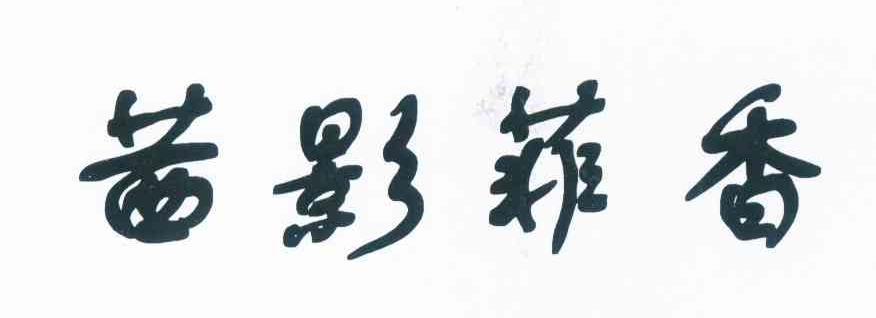 茜影菲香